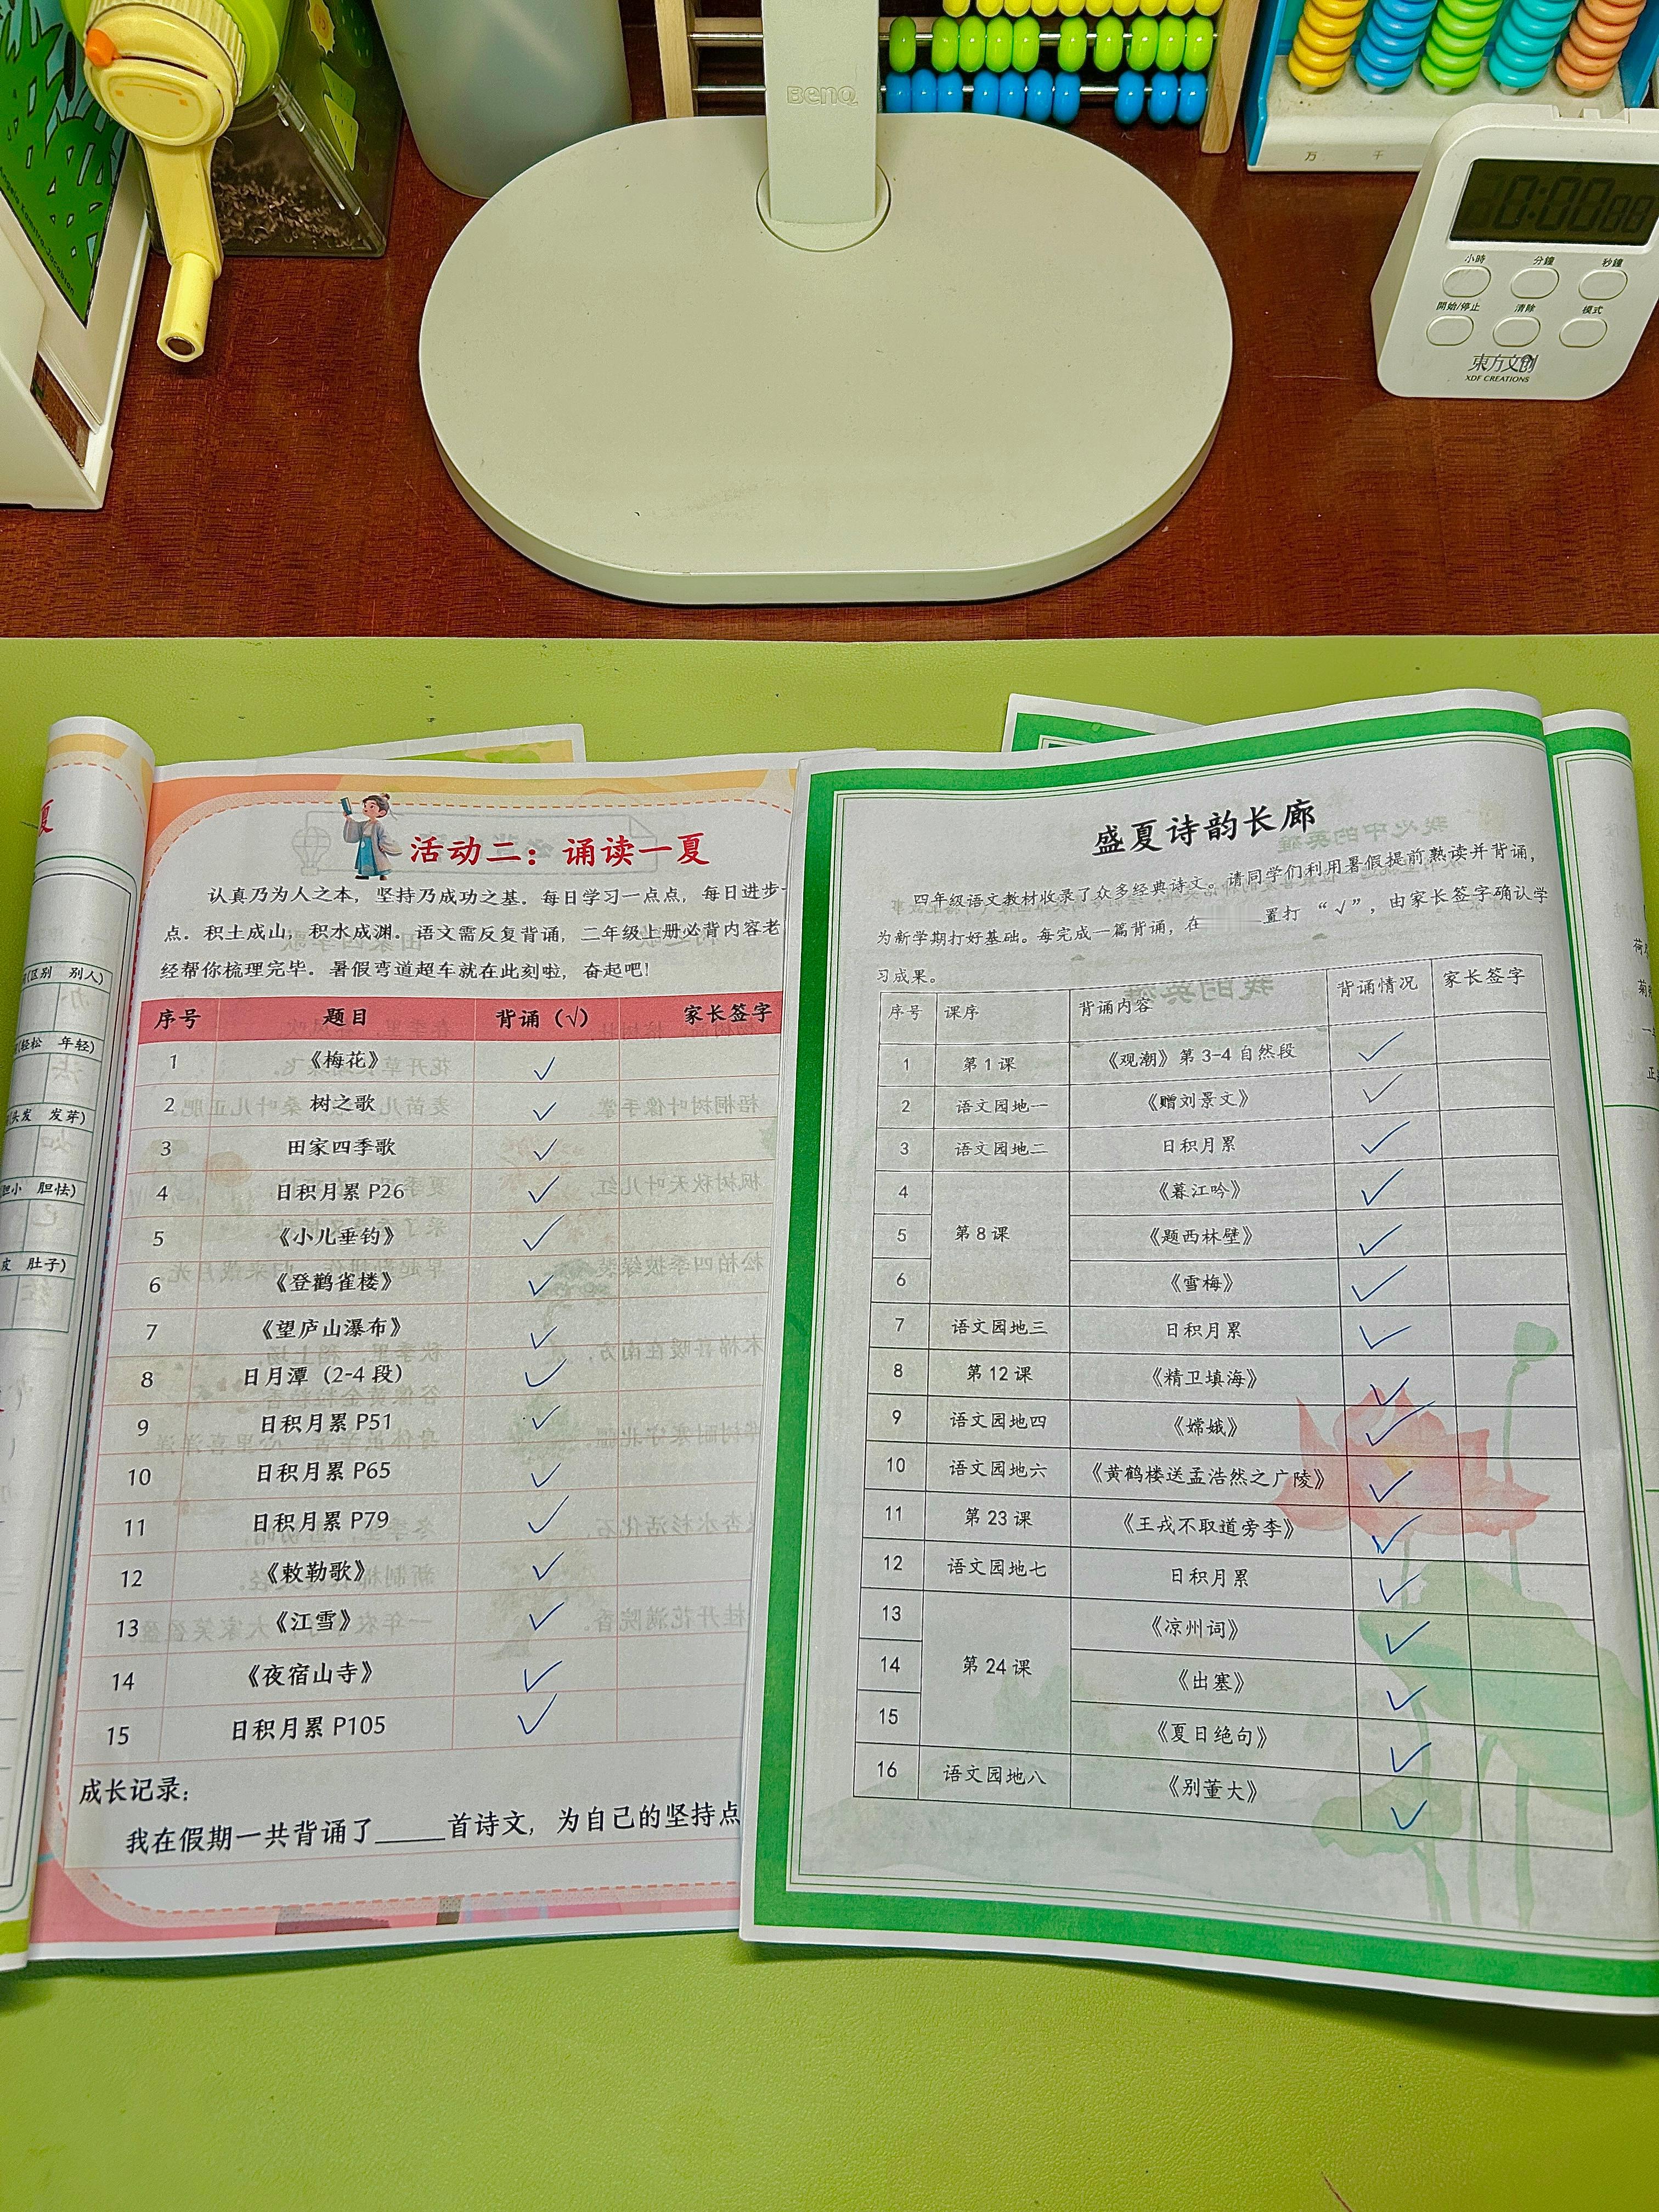 BenQ
万 千
小時 分鐘 秒鐘
開始/停止 清除 模式
東方文创
XDF CREATIONS
夏
(区别 别人)
(轻松 年轻)
(头发 发芽)
胆小 胆怯)
皮 肚子)
活动二：诵读一夏
认真乃为人之本，坚持乃成功之基。每日学习一点点，每日进步一
点。积土成山，积水成渊。语文需反复背诵，二年级上册必背内容老
经帮你梳理完毕。暑假弯道超车就在此刻啦，奋起吧！
序号 题目 背诵（√） 家长签字
1 《梅花》 ✓
2 树之歌 ✓
3 田家四季歌 ✓
4 日积月累 P26 ✓
5 《小儿垂钓》 ✓
6 《登鹳雀楼》 ✓
7 《望庐山瀑布》 ✓
8 日月潭（2-4 段） ✓
9 日积月累 P51 ✓
10 日积月累 P65 ✓
11 日积月累 P79 ✓
12 《敕勒歌》 ✓
13 《江雪》 ✓
14 《夜宿山寺》 ✓
15 日积月累 P105 ✓
成长记录：
我在假期一共背诵了_____首诗文，为自己的坚持点
盛夏诗韵长廊
四年级语文教材收录了众多经典诗文。请同学们利用暑假提前熟读并背诵，
为新学期打好基础。每完成一篇背诵，在 置打“√”，由家长签字确认学
习成果。
序号 课序 背诵内容 背诵情况 家长签字
1 第 1 课 《观潮》第 3-4 自然段 ✓
2 语文园地一 《赠刘景文》 ✓
3 语文园地二 日积月累 ✓
4 《暮江吟》 ✓
5 第 8 课 《题西林壁》 ✓
6 《雪梅》 ✓
7 语文园地三 日积月累 ✓
8 第 12 课 《精卫填海》 ✓
9 语文园地四 《嫦娥》 ✓
10 语文园地六 《黄鹤楼送孟浩然之广陵》 ✓
11 第 23 课 《王戎不取道旁李》 ✓
12 语文园地七 日积月累 ✓
13 《凉州词》 ✓
14 第 24 课 《出塞》 ✓
15 《夏日绝句》 ✓
16 语文园地八 《别董大》 ✓